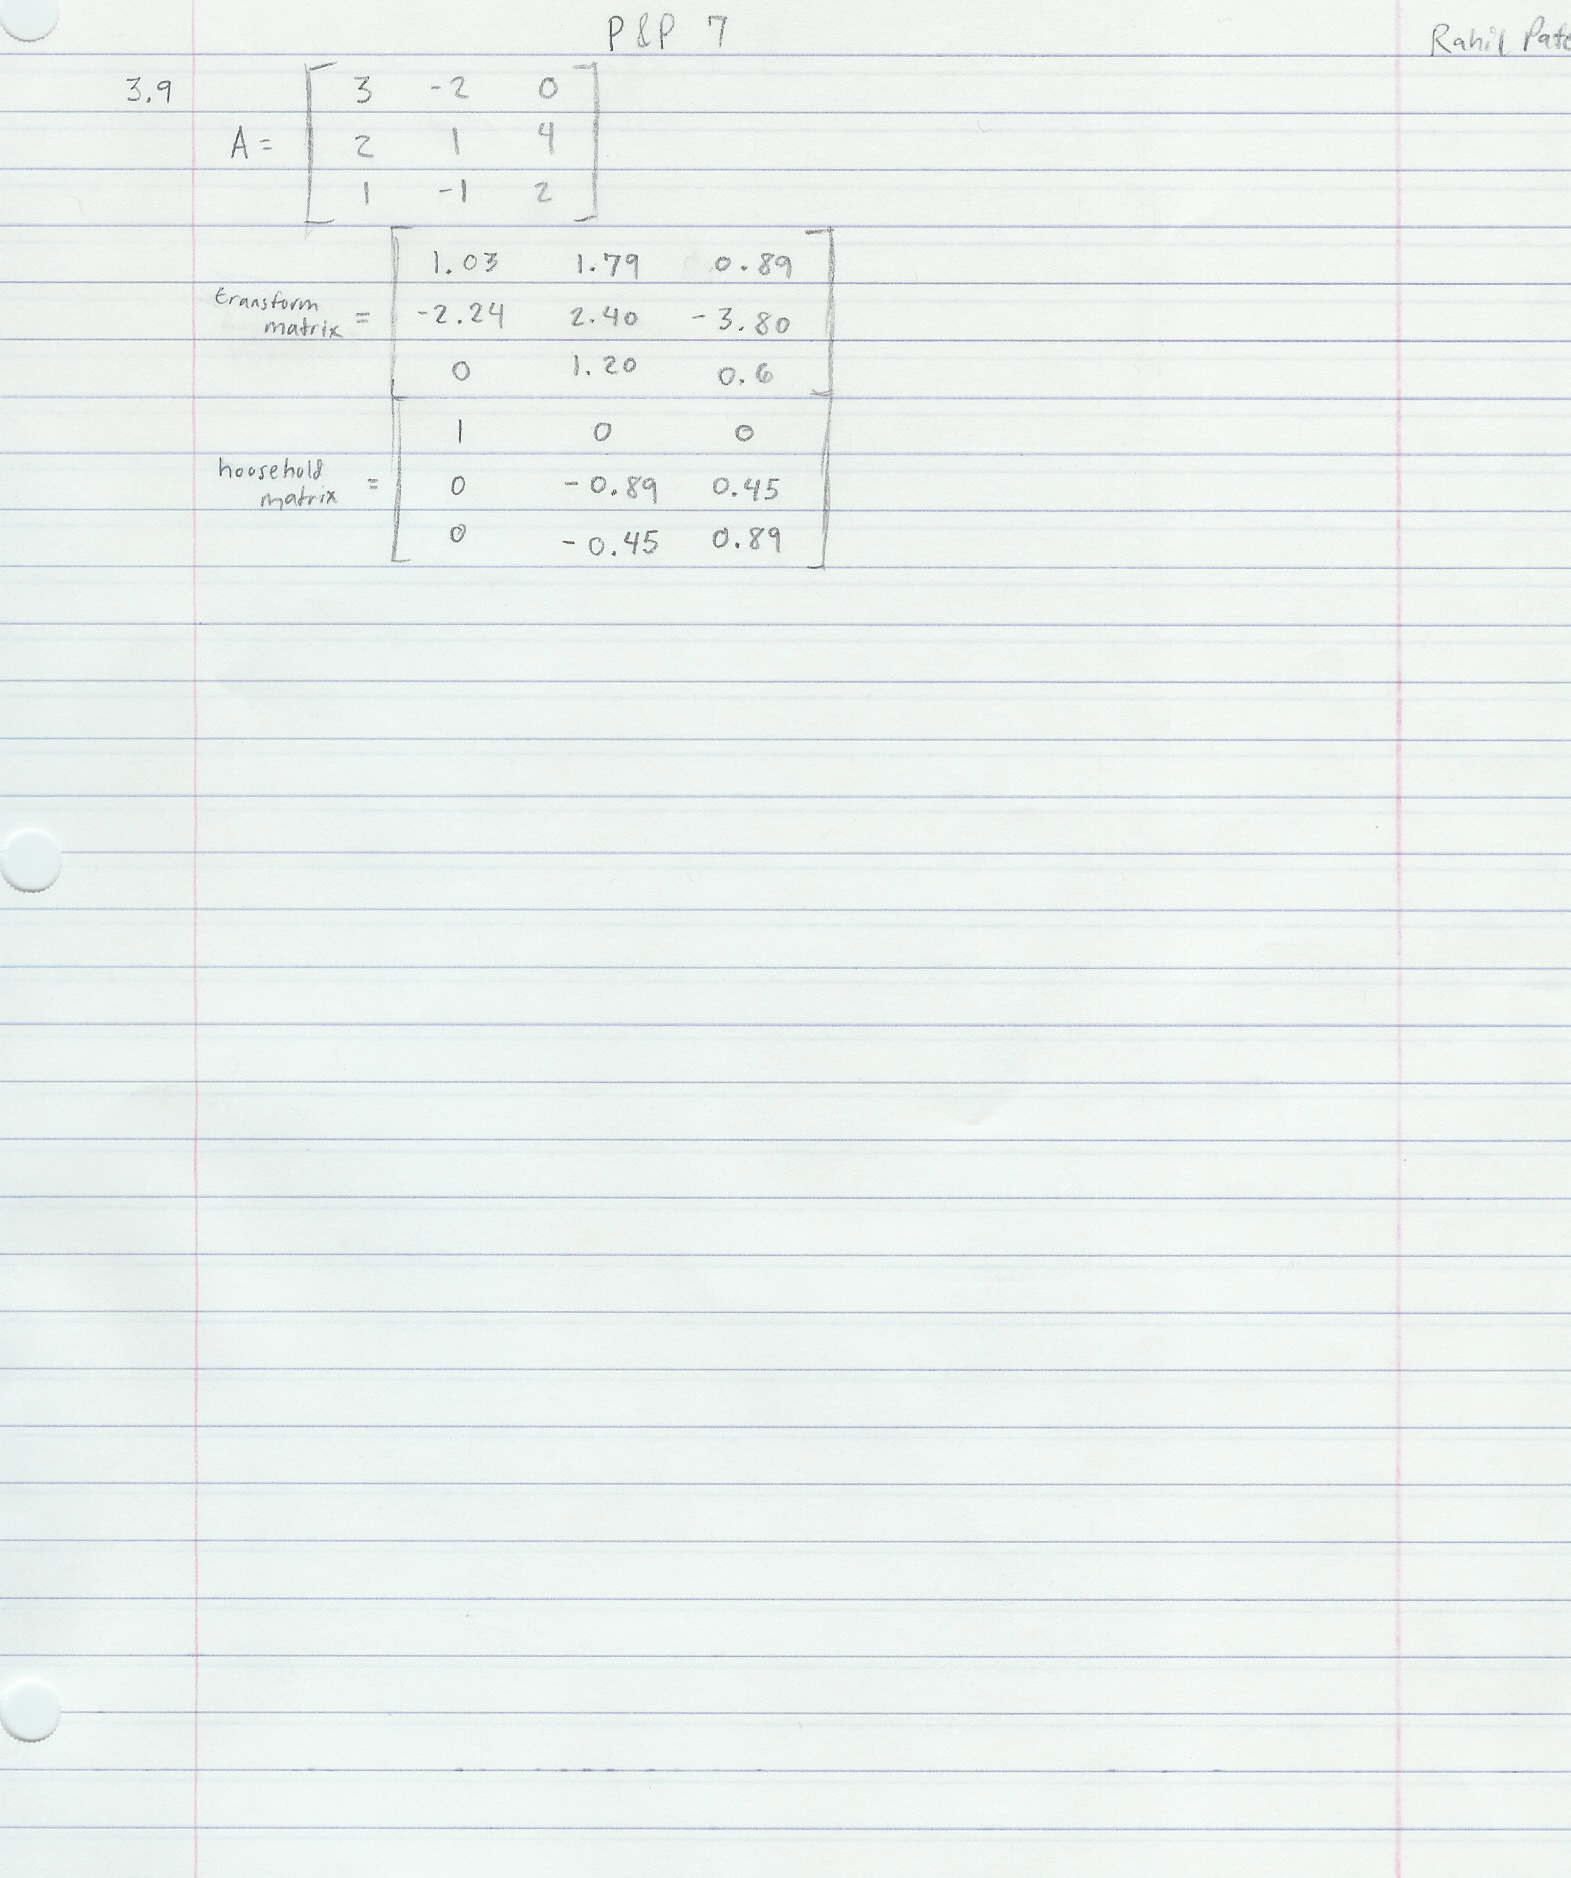 P&P 7
Rahil Pate
3.9
A = [ 3 -2 0
2 1 4
1 -1 2 ]
transform matrix = [ 1.03 1.79 0.89
-2.24 2.40 -3.80
0 1.20 0.6 ]
household matrix = [ 1 0 0
0 -0.89 0.45
0 -0.45 0.89 ]